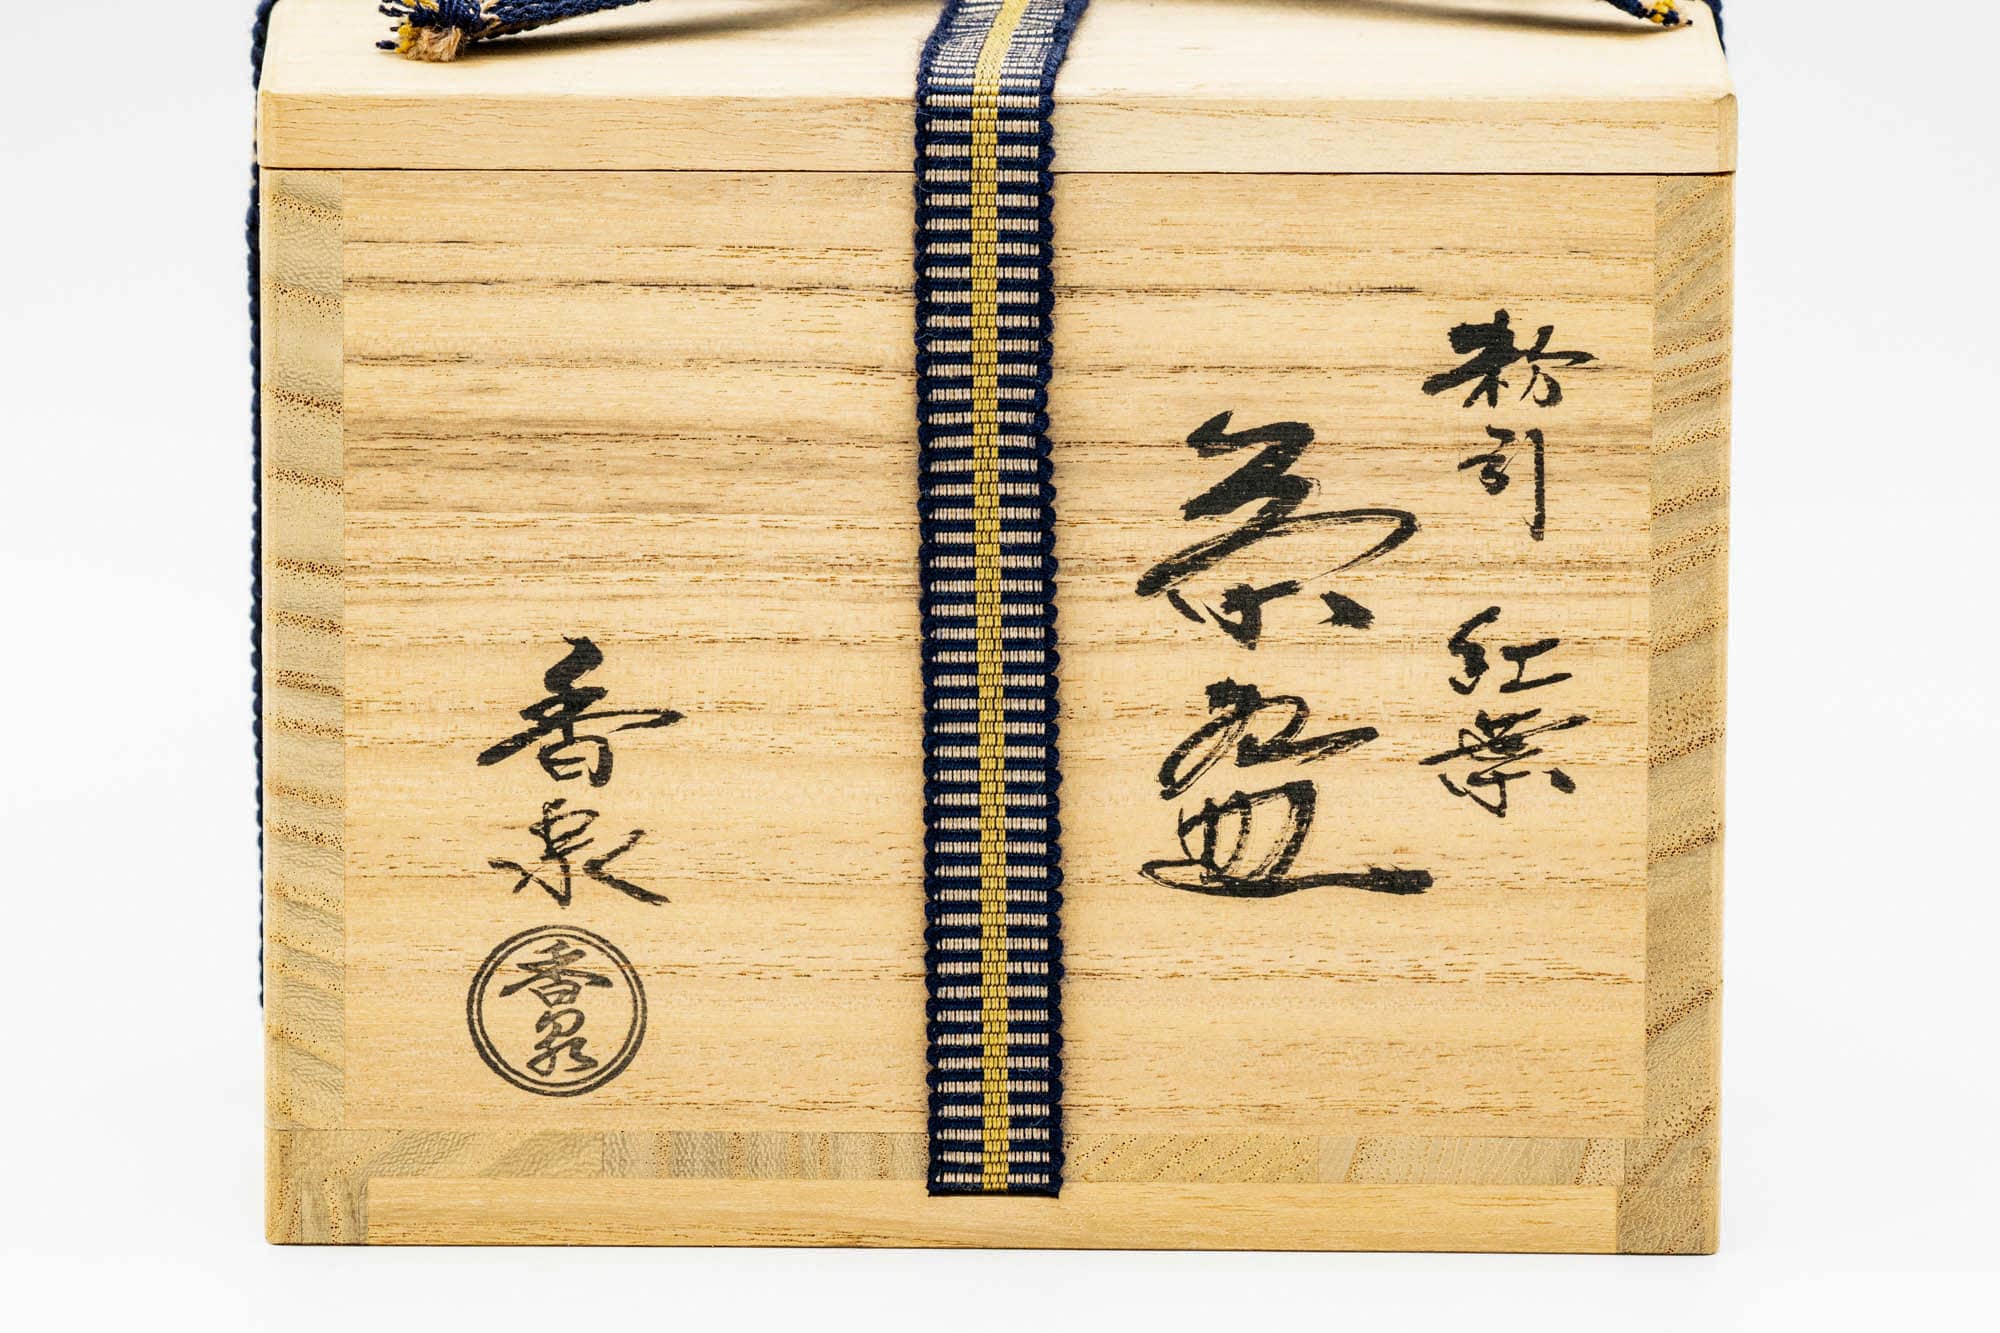 粉引 紅葉
茶盌
香泉
香泉